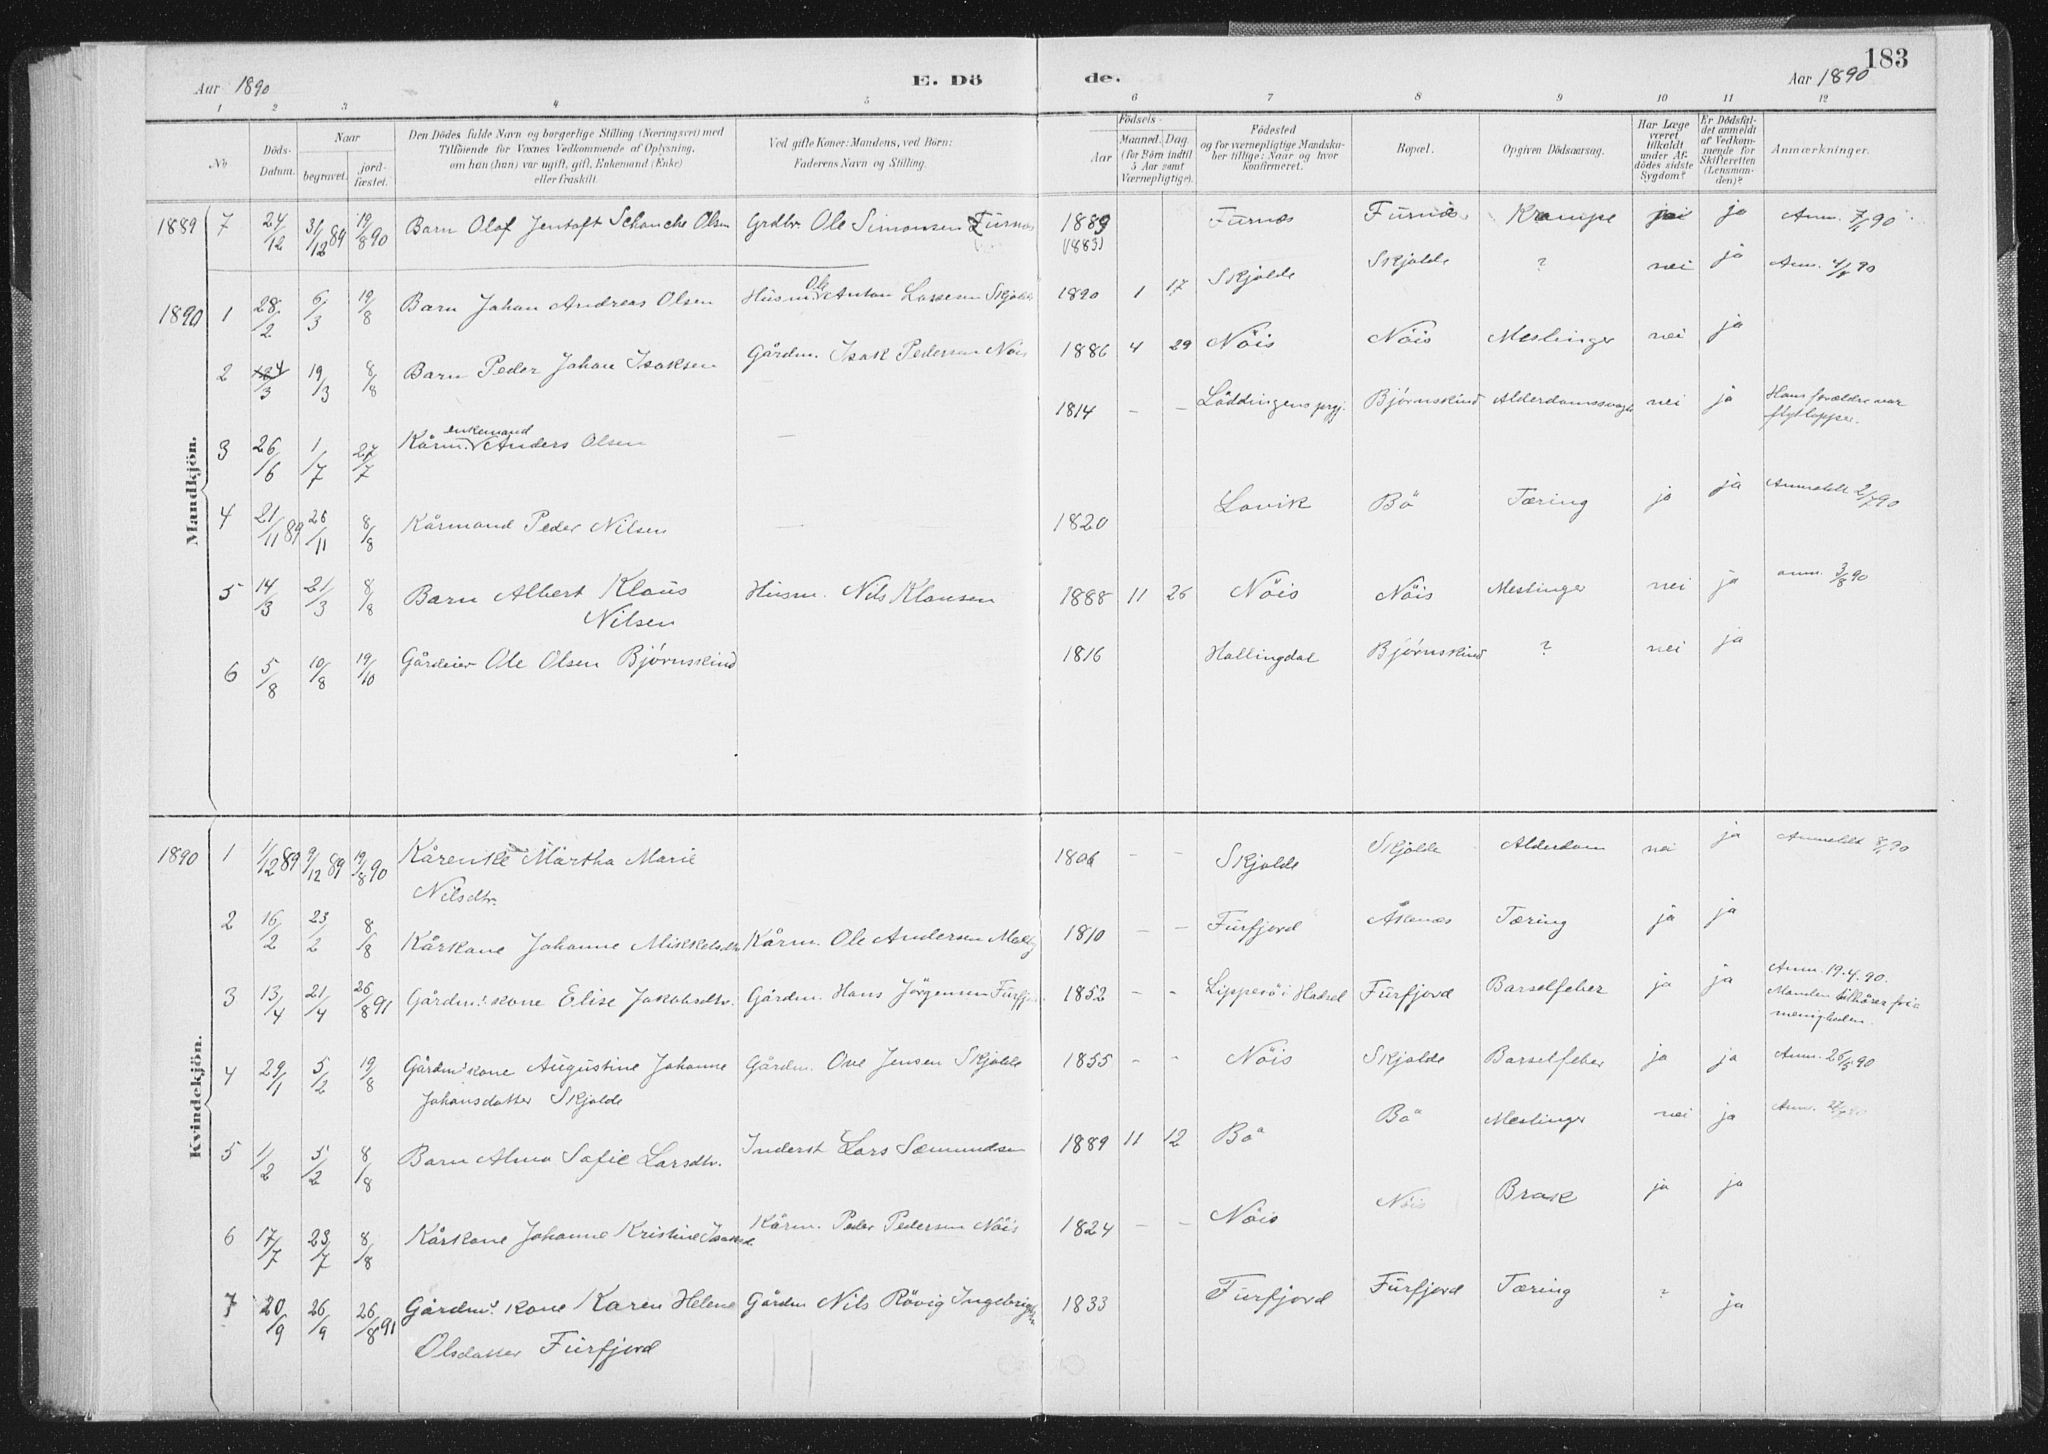 183
Aar 1890 E. Dö de. Aar 1890
1 2 3 4 5 6 7 8 9 10 11 12
No
Döds-Datum.
Naar
begravet. jordfæstet.
Den Dödes fulde Navn og borgerlige Stilling (Næringsvei) med
Tilföiende for Voxnes Vedkommende af Oplysning,
om han (hun) var ugift, gift, Enkemand (Enke)
eller fraskilt.
Ved gifte Koner: Mandens, ved Börn:
Faderens Navn og Stilling.
Födsels-
Aar
Maaned. Dag.
(for Börn indtil
5 Aar samt
Værnepligtige).
Födested
og for værnepligtige Mandskaber tillige: Naar og hvor
konfirmeret.
Bopæl.
Opgiven Dödsaarsag.
Har Læge
været
tilkaldt
under Afdödes sidste
Sygdom?
Er Dödsfaldet anmeldt
af Vedkommende for
Skifteretten
(Lensmanden)?
Anmærkninger.
Mandkjön.
1889 7 24/12 31/12 89 19/8 90 Barn Olaf Jentoft Schanche Olsen Grdbr. Ole Simonsen Furnes 1889 (1883) Furnes Furnes Krampe nei ja Anm. 7/1 90
1890 1 28/2 6/3 19/8 Barn Johan Andreas Olsen Husm. Ole Anton Larsen Skjolde 1890 1 17 Skjolde Skjolde ? nei ja Anm. 4/8 90
2 /3 19/3 8/8 Barn Peder Johan Isaksen Gårdm. Isak Pedersen Nöis 1886 4 29 Nöis Nöis Meslinger nei ja
3 26/6 1/7 27/7 Kårm. enkemand Anders Olsen — 1814 - - Löddingens prgj. Bjørnskind Alderdomssvaghed nei ja Hans forældre var
flytlapper.
4 21/11 89 26/11 8/8 Kårmand Peder Nilsen — 1820 Lovik Bö Tæring ja ja Anmeldt 2/7 90
5 14/3 21/3 8/8 Barn Albert Klaus
Nilsen Husm. Nils Klausen 1888 11 26 Nöis Nöis Meslinger nei ja anm. 3/8 90
6 5/8 10/8 19/10 Gårdeier Ole Olsen Bjørnskind 1816 Hallingdal Bjørnskind ? nei ja
Kvindekjön.
1890 1 1/12 89 9/12 89 19/8 90 Kårenke Martha Marie
Nilsdtr. 1806 - - Skjolde Skjolde Alderdom nei ja Anmeldt 8/1 90
2 16/2 23/2 8/8 Kårkone Johanne Mikkelsdtr. Kårm. Ole Andersen 1810 - - Furfjord Åknes Tæring ja ja
3 13/4 21/4 26/8 91 Gårdm.s kone Elise Jakobsdtr. Gårdm. Hans Jörgensen Furfjord 1852 - - Lippesö i Hadsel Furfjord Barselfeber ja ja Anm. 19.4.90.
Manden tilhörer frimenigheden.
4 29/1 5/2 19/8 Gårdm.s kone Augustine Johanne
Johansdatter Skjolde Gårdm. Ove Jensen Skjolde 1855 - - Nöis Skjolde Barselfeber ja ja Anm. 26/3 90
5 1/2 5/2 8/8 Barn Alma Sofie Larsdtr. Inderst Lars Sæmundsen 1889 11 12 Bö Bö Meslinger nei ja Anm. 27/ 90
6 17/7 23/7 8/8 Kårkone Johanne Kristine Isaksd. Kårm. Peder Pedersen Nöis 1824 - - Nöis Nöis Brok ja ja
7 20/9 26/9 26/8 91 Gårdm.s kone Karen Helene
Olsdatter Furfjord Gårdm Nils Rövig Ingebrigtsen 1833 Furfjord Furfjord Tæring ? ja